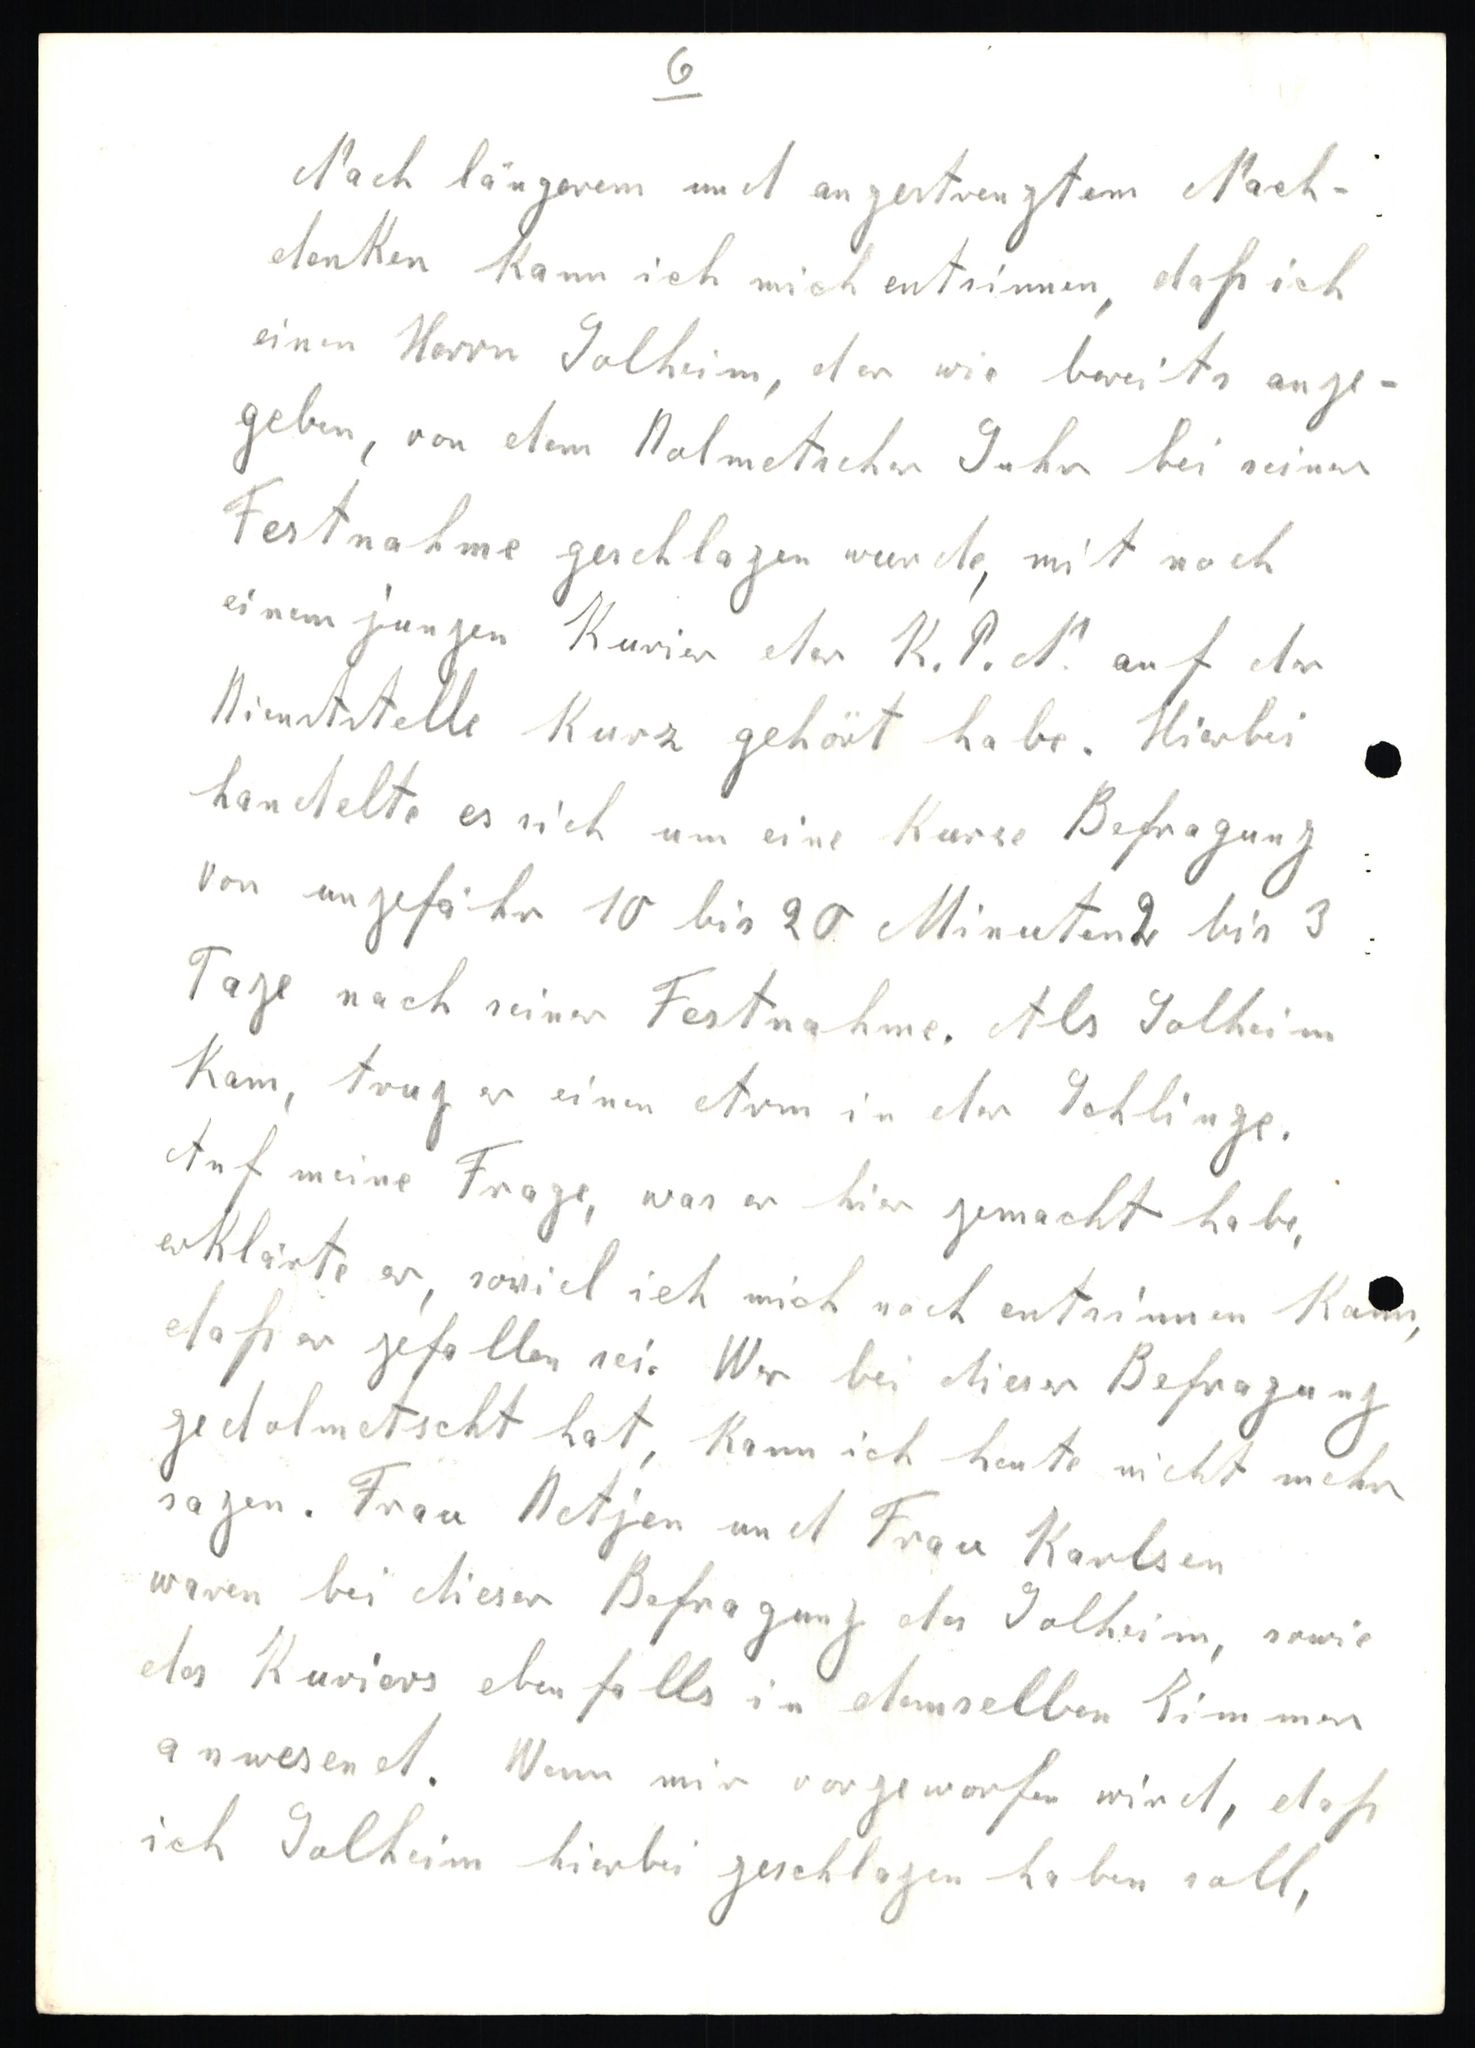 6
Nach längerem und angestrengtem Nach-
denken kann ich mich entsinnen, daß ich
einen Herrn Solheim, der wie bereits ange-
geben, von dem Dolmetscher Suhr bei seiner
Festnahme geschlagen wurde, mit noch
einem jungen Kurier der K.P.N. auf der
Dienststelle kurz gehört habe. Hierbei
handelte es sich um eine kurze Befragung
von ungefähr 10 bis 20 Minuten 2 bis 3
Tage nach seiner Festnahme. Als Solheim
kam, trug er einen Arm in der Schlinge.
Auf meine Frage, was er hier gemacht habe,
erklärte er, soviel ich mich noch entsinnen kann,
daß er gefallen sei. Wer bei dieser Befragung
gedolmetscht hat, kann ich heute nicht mehr
sagen. Frau Detjen und Frau Karlsen
waren bei dieser Befragung des Solheim, sowie
des Kuriers ebenfalls in demselben Zimmer
anwesend. Wenn mir vorgeworfen wird, daß
ich Solheim hierbei geschlagen haben soll,